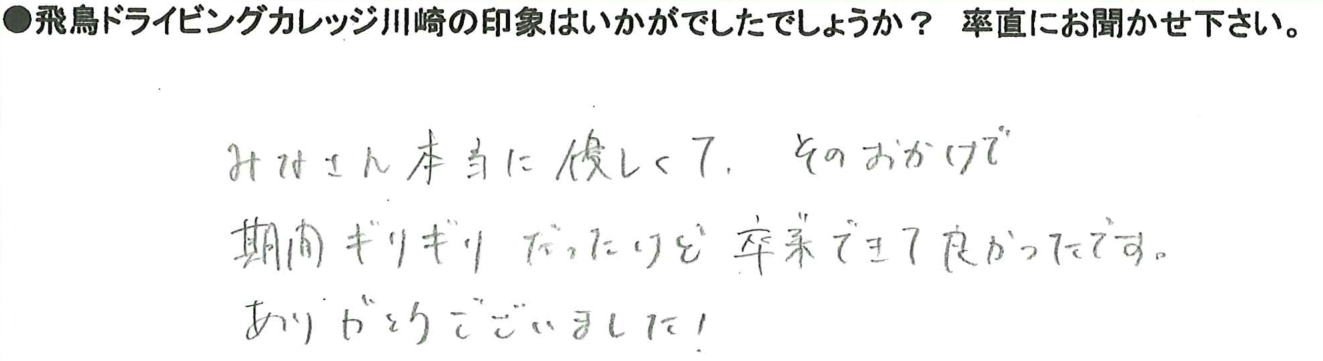 ●飛鳥ドライビングカレッジ川崎の印象はいかがでしたでしょうか? 率直にお聞かせ下さい。
みなさん本当に優しくて、そのおかげで
期間ギリギリだったけど卒業できて良かったです。
ありがとうございました!